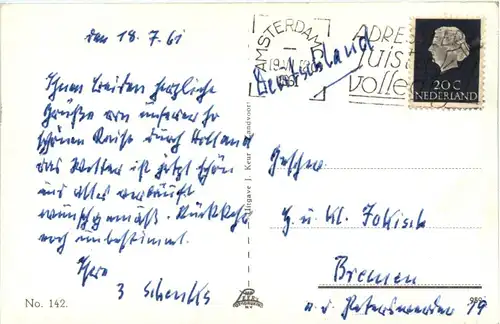 den 18.7.61
Ihnen beiden herzliche
Grüße von unserer so
schönen Reise durch Holland
das Wetter ist jetzt schön
und alles verläuft
wunschgemäß. Rückkehr
noch unbestimmt.
Ihre
3 Schenks
No. 142.
Uitgave J. Keur Zandvoort
AMSTERDAM
1961
ADRES
JUIST
VOLLEDIG
20 C
NEDERLAND
Deutschland
Geschw.
H. u. Kl. Jokisch
Bremen
a. d. Peterswerder 19